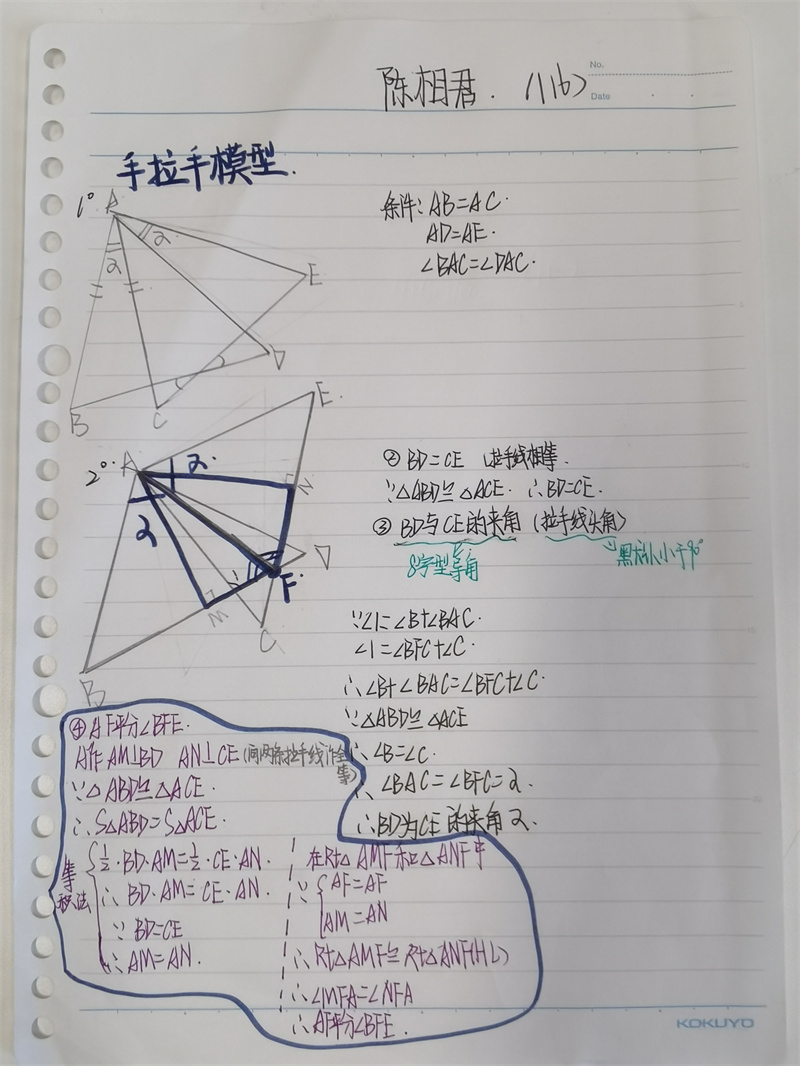 陈相君. (16)
No.
Date
手拉手模型.
1° A
α
α
E
D
B
C
条件: AB=AC.
AD=AE.
∠BAC=∠DAC.
E.
2°. A
α
α
N
D
F.
1
M
C
B
② BD=CE 拉手线相等.
∵△ABD≌△ACE. ∴BD=CE.
③ BD与CE的夹角 (拉手线头角)
8字型导角
默认小于90°
∵∠1=∠B+∠BAC.
∠1=∠BFC+∠C.
∴∠B+∠BAC=∠BFC+∠C.
∵△ABD≌△ACE
∴∠B=∠C.
∴∠BAC=∠BFC=α.
∴BD为CE的夹角α.
④AF平分∠BFE.
A作AM⊥BD AN⊥CE (向两条拉手线作垂线)
∵△ABD≌△ACE.
∴S△ABD=S△ACE.
等积法
½·BD·AM=½·CE·AN.
∴BD·AM=CE·AN.
∵BD=CE
∴AM=AN.
在Rt△AMF和△ANF中
∵ AF=AF
AM=AN
∴Rt△AMF≌Rt△ANF(HL)
∴∠MFA=∠NFA
∴AF平分∠BFE.
KOKUYO